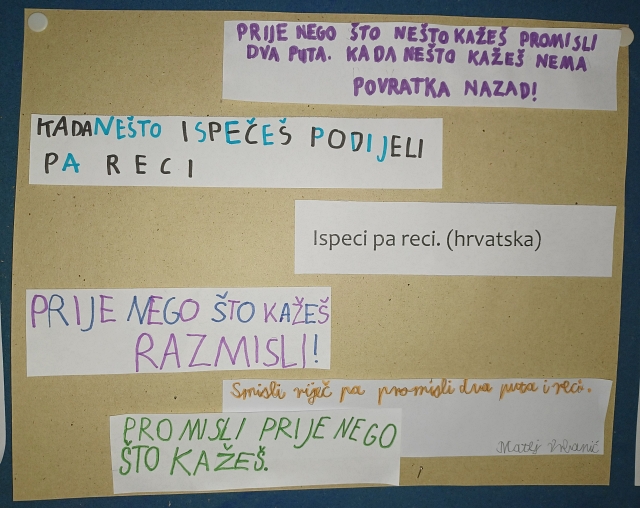 PRIJE NEGO ŠTO NEŠTO KAŽEŠ PROMISLI
DVA PUTA. KADA NEŠTO KAŽEŠ NEMA
POVRATKA NAZAD!
KADA NEŠTO ISPEČEŠ PODIJELI
PA RECI
Ispeci pa reci. (hrvatska)
PRIJE NEGO ŠTO KAŽEŠ
RAZMISLI!
Smisli riječ pa promisli dva puta i reci.
Matej
PROMISLI PRIJE NEGO
ŠTO KAŽEŠ.